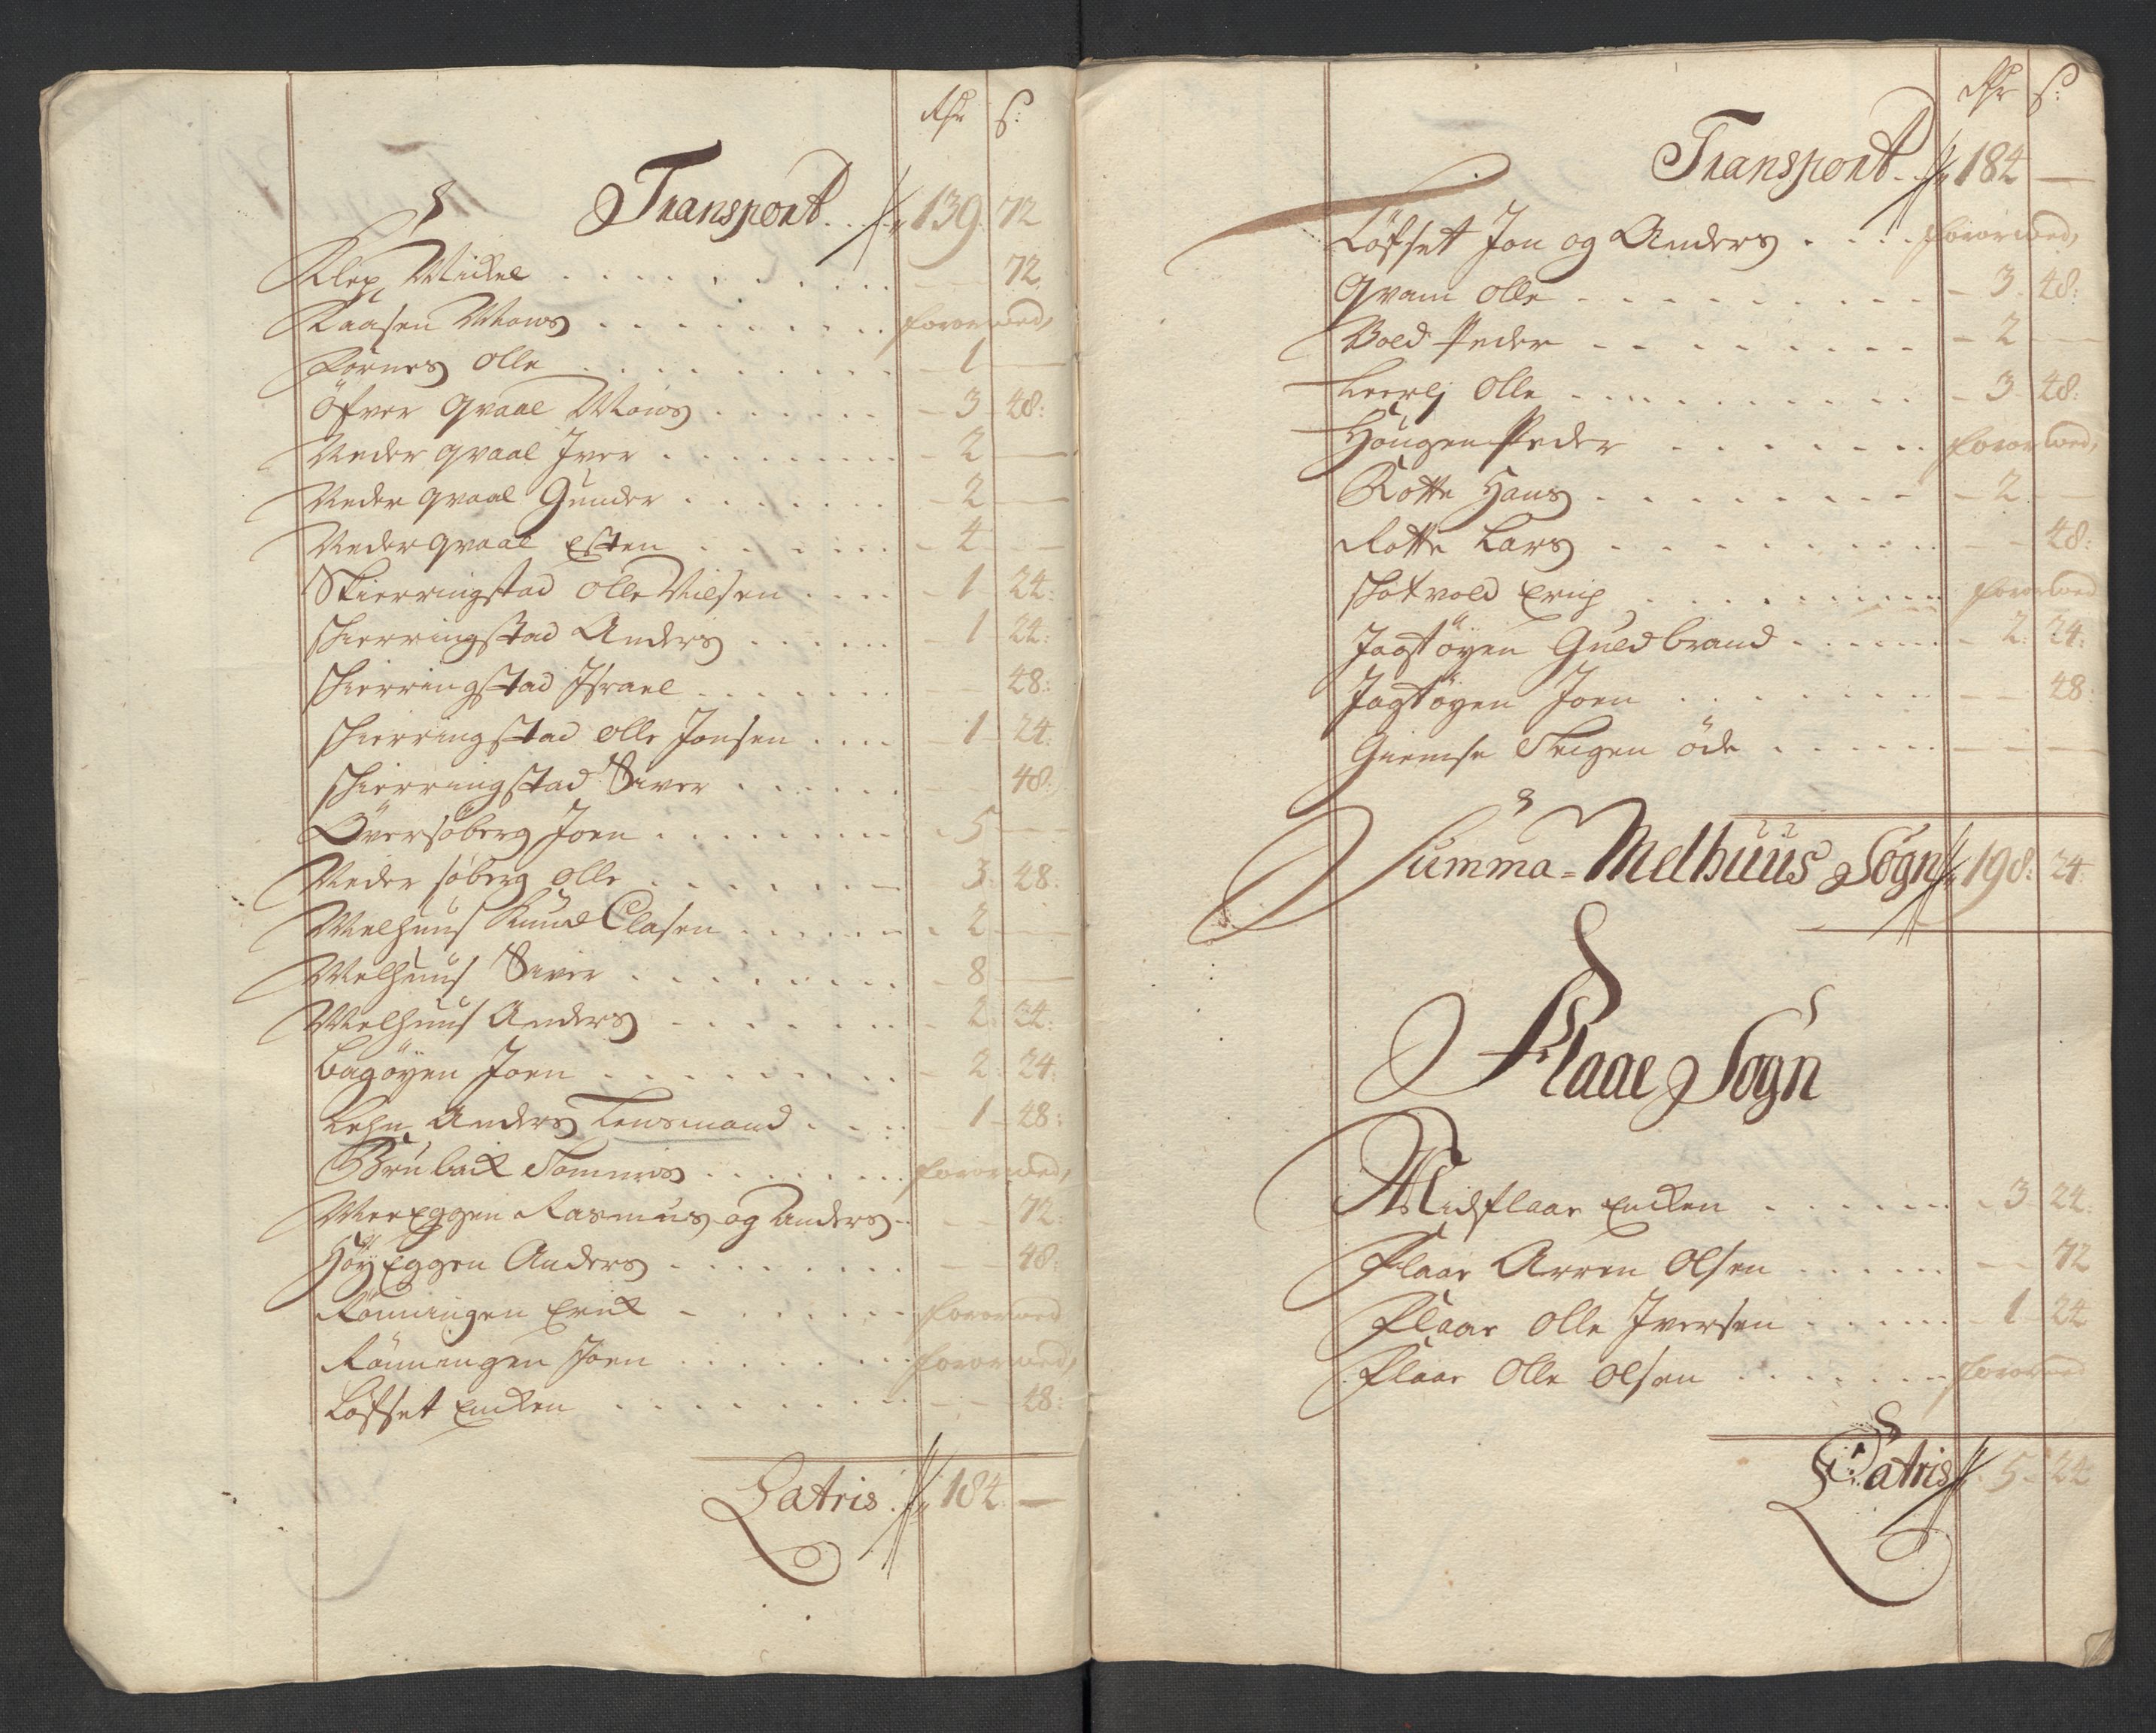 Rdr ß:
Transport . . // 139. 72
Klep Mickel . . . . . . 72.
Kaasen Mons . . . . . . forarmed,
Fornes Olle . . . . . . 1 —
Öfver Qvaal Mons . . . . . . 3 - 48:
Neder qvaal Iver . . . . . . 2 —
Neder qvaal Gunder . . . . . . 2 —
Neder qvaal Esten . . . . . . 4 —
Skierringstad Olle Nilsen . . . . 1 - 24:
Skierringstad Anders . . . . . . 1 - 24:
Skierringstad Israel . . . . . . 48:
Skierringstad Olle Jonsen . . . . 1 - 24.
Skierringstad Siver . . . . . . 48:
Översöberg Joen . . . . . . 5 —
Neder söberg Olle . . . . . . 3. 48.
Melhuus Knud Clasen . . . . . . 2 —
Melhuus Siver . . . . . . 8 —
Melhuus Anders . . . . . . 2. 24:
Bagöyen Joen . . . . . . 2. 24.
Lehn Anders Lensmand . . . . 1 - 48:
Brubak Tommes . . . . . . forarmed,
Meeeggen Rasmus og Anders . . 72:
Höyeggen Anders . . . . . . 48:
Rönningen Erik . . . . . . forarmed
Rönningen Joen . . . . . . forarmed,
Löfset Encken . . . . . . 48:
Latris . // 184. —
Rdr ß:
Transport . . // 184 —
Löfset Jon og Anders . . . . forarmed,
Qvam Olle . . . . . . 3. 48:
Vold Peder . . . . . . 2 —
Leerlj Olle . . . . . . 3. 48:
Hougen Peder . . . . . . forarmed,
Rotte Hans . . . . . . 2. —
Rotte Lars . . . . . . 48:
Skotvold Erich . . . . . . forarmed
Jagtöyen Guldbrand . . . . . . 2. 24:
Jagtöyen Joen . . . . . . 48:
Giemse Teigen öde . . . . . . — — —
Summa = Melhuus Sogn // 198: 24.
Flaae Sogn
Midflaae Encken . . . . . . 3 24:
Flaae Arren Olsen . . . . . . 72
Flaae Olle Iversen . . . . . . 1 24
Flaae Olle Olsen . . . . . . forarmed
Latris // 5 - 24